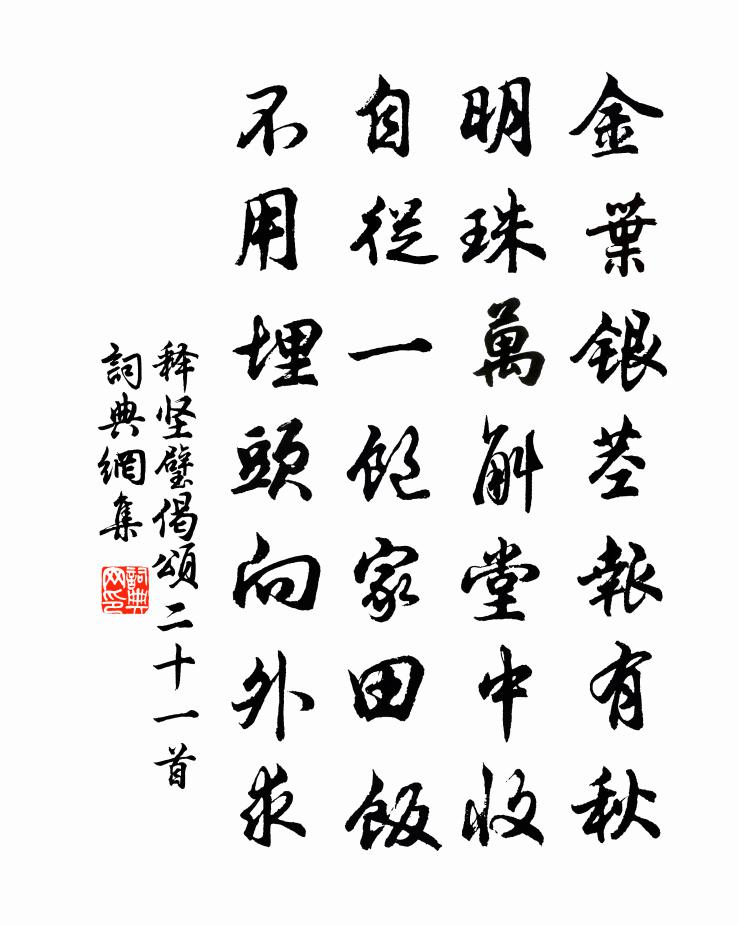 金葉銀茎報有秋
明珠萬斛堂中收
自從一飽家田飯
不用埋頭向外求
释坚璧偈頌二十一首
詞典網集
詞典网印